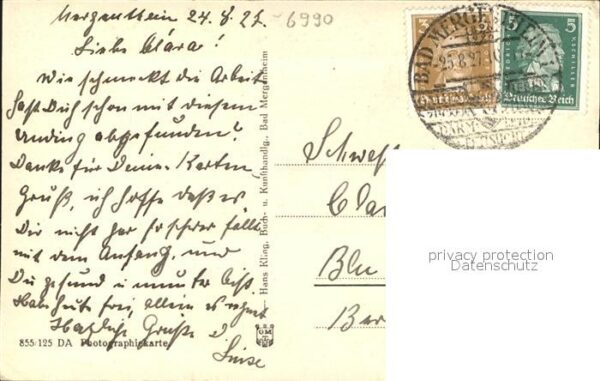 Mergentheim 24.8.27. -6990
Liebe Clara!
Wie schmeckt die Arbeit
hast Dich schon mit diesem
abgefunden?
Danke für Deine Karten
Gruß, ich hoffe daß es
Dir nicht gar so schwer fällt
mit dem Anfang, und
Du gesund u. munter bist.
Habe heute frei, allein es regnet
Herzliche Grüße
Luise
855/125 DA Photographiekarte
Hans Kling, Buch- u. Kunsthandlg., Bad Mergentheim
Schwest
Cla
Blu
Ber
3
5
F. v. SCHILLER
Deutsches Reich
Deutsches Reich
BAD MERGENTHEIM
-25.8.27
privacy protection
Datenschutz